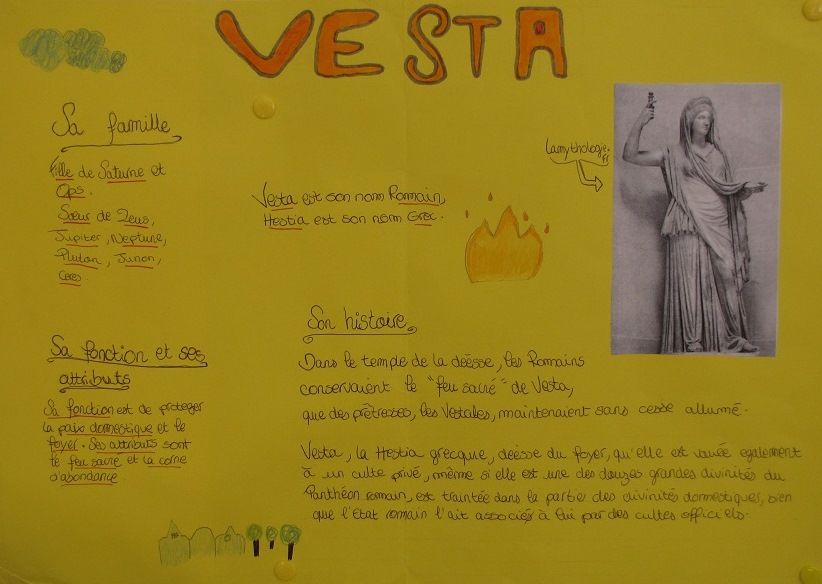 VESTA
Sa famille
Fille de Saturne et
Ops.
Sœur de Zeus,
Jupiter, Neptune,
Pluton, Junon,
Ceres.
Vesta est son nom Romain,
Hestia est son nom Grec.
Lamythologie.
fr
Sa fonction et ses
attributs
Sa fonction est de proteger
la paix domestique et le
foyer. Ses attributs sont
le feu sacré et la corne
d'abondance
Son histoire
Dans le temple de la déesse, les Romains
conservaient le "feu sacré" de Vesta,
que des prêtresses, les Vestales, maintenaient sans cesse allumé.
Vesta, la Hestia grecque, déesse du foyer, qu'elle est vouée egalement
à un culte privé, même si elle est une des douzes grandes divinités du
Panthéon romain, est traintée dans la partie des divinités domestiques, bien
que l'Etat romain l'ait associés à lui par des cultes officiels.